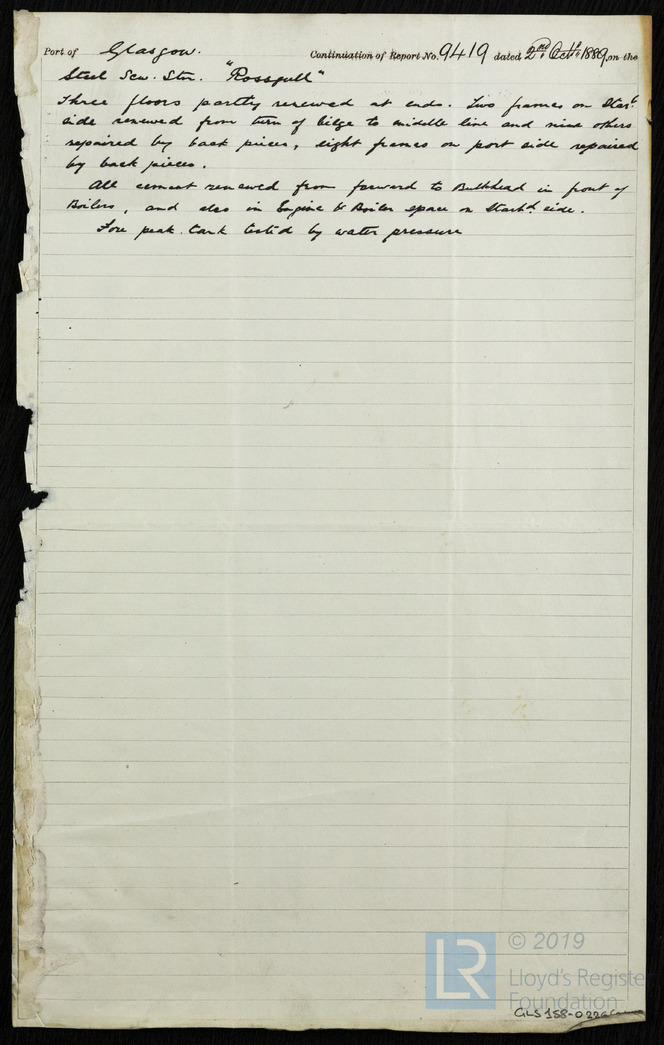 Port of Glasgow. Continuation of Report No. 9419 dated 2nd Oct 1889, on the
Steel Scw. Str. "Rossgull"
Three floors partly renewed at ends. Two frames on Starb.
side renewed from turn of bilge to middle line and nine others
repaired by back pieces, eight frames on port side repaired
by back pieces.
All cement renewed from forward to Bulkhead in front of
Boilers, and also in Engine & Boiler space on Starbd. side.
Fore peak tank tested by water pressure
LR © 2019
Lloyd's Register
Foundation
GLS188-0226